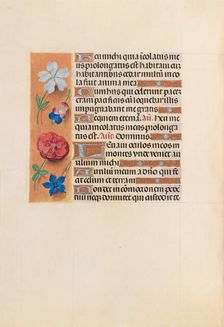 Heu michi quia incolatus meus
prolongatus est habitavi cum
habitantibus cedar multum inco
la fuit anima mea
Cum hiis qui oderunt pacem
eram pacificus cum loquebar illis
impugnabant me gratis
Requiem eternam. An. Heu me
quia incolatus meus prolonga
tus est. Ant. Dominus
Levavi oculos meos in
montes unde veniet au
xilium michi
Auxilium meum a domino qui
fecit celum et terram
Non det in commotionem